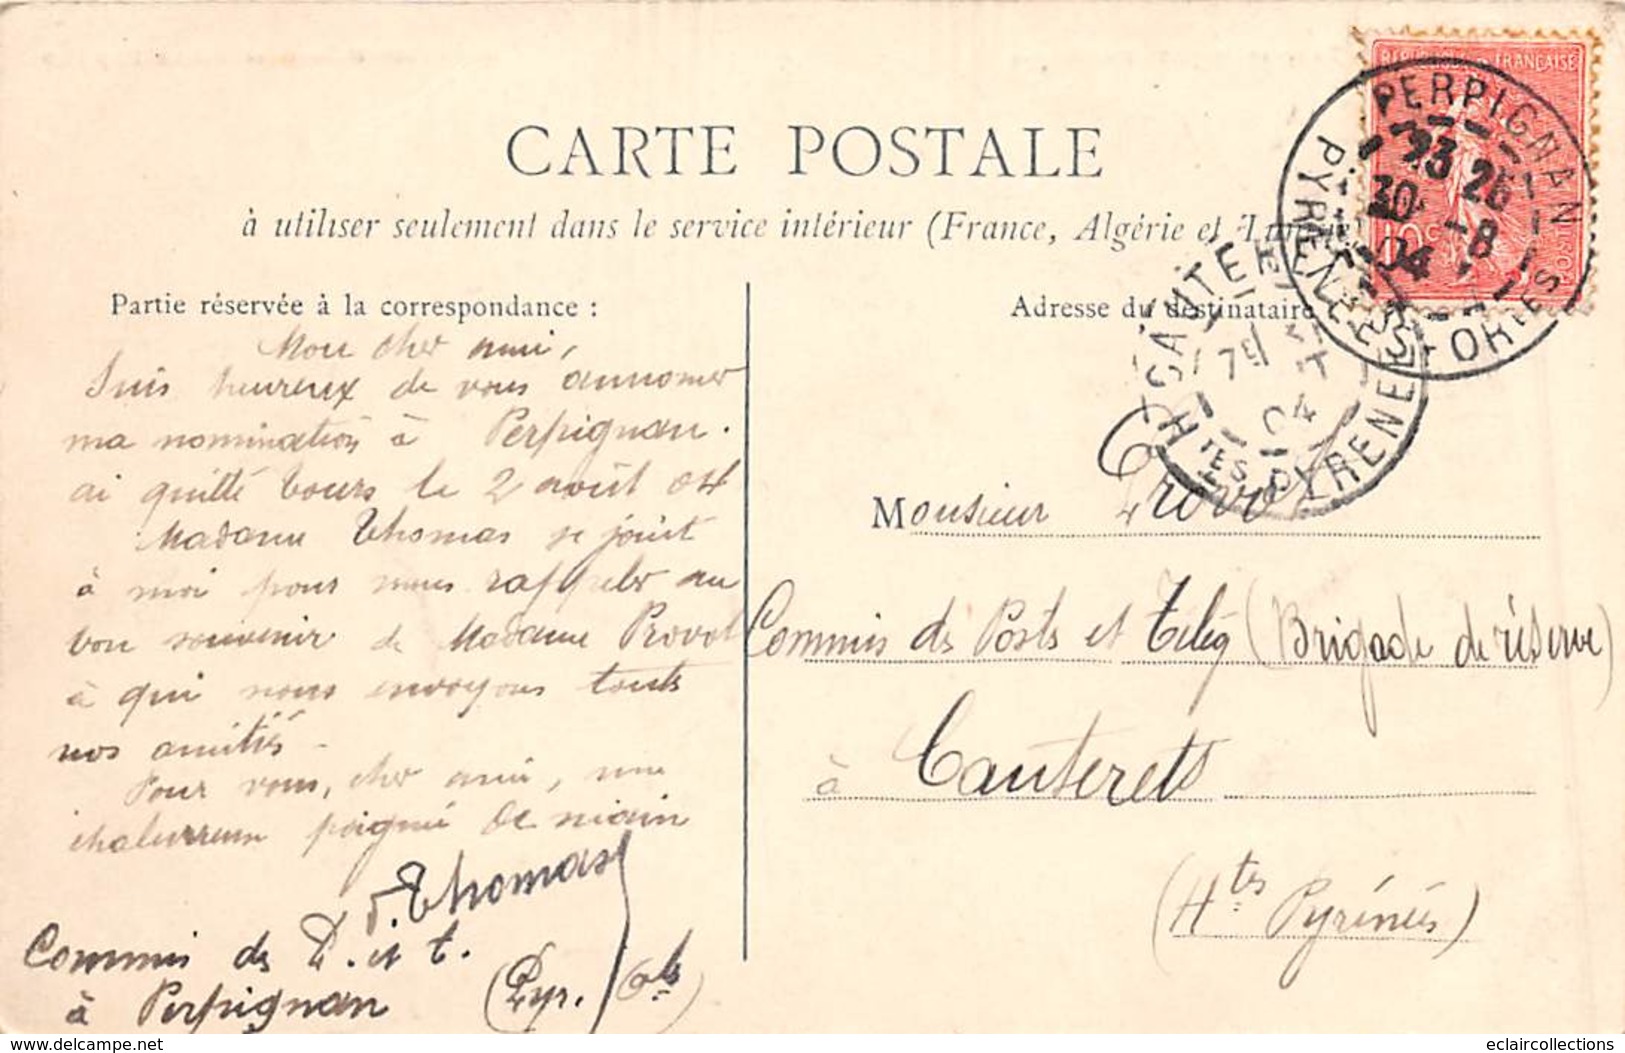 CARTE POSTALE
à utiliser seulement dans le service intérieur (France, Algérie et
Partie réservée à la correspondance :
Mon cher ami,
Suis heureux de vous annoncer
ma nomination à Perpignan.
ai quitté Tours le 2 août 04
Madame Thomas se joint
à moi pour nous rappeler au
bon souvenir de Madame Provot
à qui nous envoyons toutes
nos amitiés -
Pour vous, cher ami, une
chaleureuse poignée de main
Thomas
Commis des P. et t.
à Perpignan (Pyr. Oles)
Adresse du destinataire
Monsieur Provot
Commis des Postes et Télég (Brigade de réserve)
à Cauterets
(Htes Pyrénées)
REPUBLIQUE FRANÇAISE
10c
PERPIGNAN
23 25
30 -8
04
PYRENEES-ORIES
CAUTERETS
7E
04
HTES PYRENEES
delcampe.net
eclaircollections